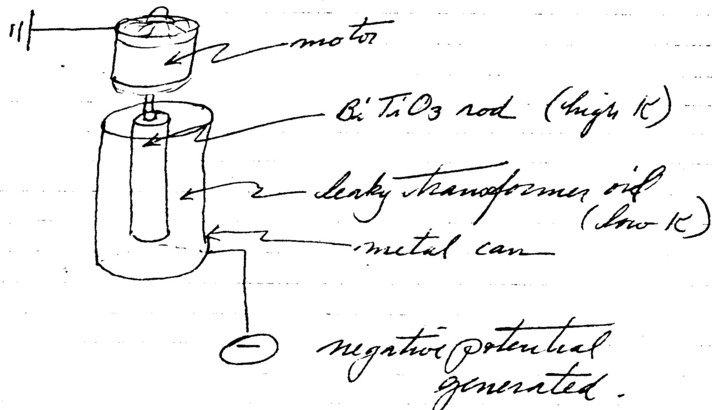 motor
BiTiO3 rod (high K)
leaky transformer oil
(low K)
metal can
−
negative potential
generated.